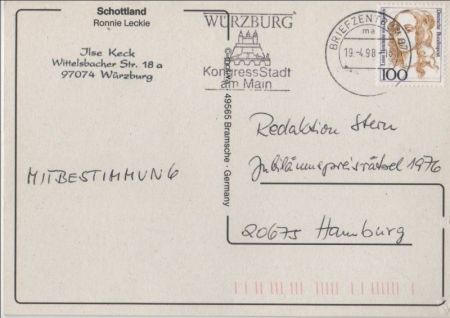 Schottland
Ronnie Leckie
Ilse Keck
Wittelsbacher Str. 18 a
97074 Würzburg
MITBESTIMMUNG
WÜRZBURG
KongressStadt
am Main
BRIEFZENTRUM
19.-4.98
Deutsche Bundespost
100
49565 Bramsche · Germany
Redaktion Stern
Jubiläumspreisrätsel 1976
20675 Hamburg